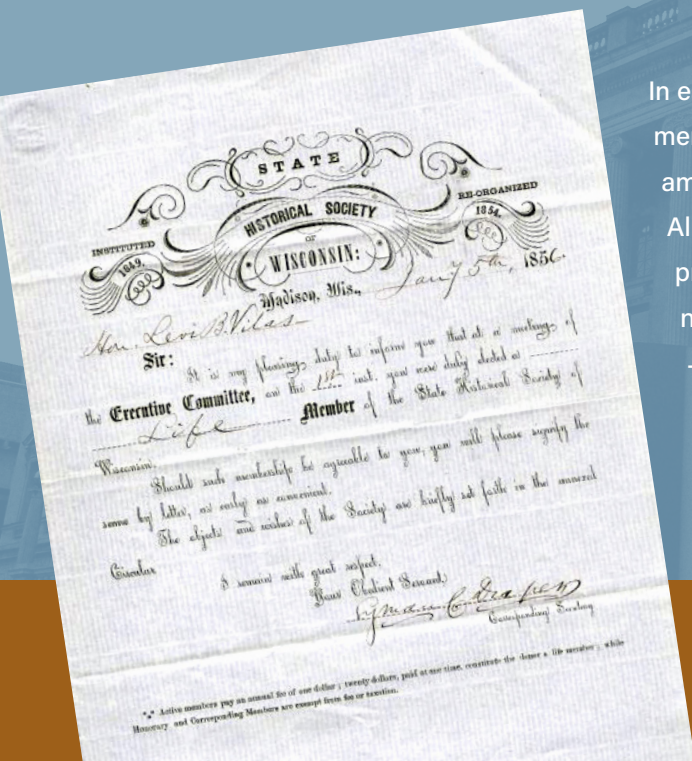 STATE
HISTORICAL SOCIETY
OF
WISCONSIN:
INSTITUTED
1849.
RE-ORGANIZED
1854.
Madison, Wis., Jany 5th, 1856
Hon. Levi B. Vilas
Sir:
It is my pleasing duty to inform you that at a meeting of
the Executive Committee, on the 1st inst. you were duly elected a
Life Member of the State Historical Society of
Wisconsin.
Should such membership be agreeable to you, you will please signify the
same by letter, as early as convenient.
The objects and wishes of the Society are briefly set forth in the annexed
Circular
I remain with great respect,
Your Obedient Servant,
Lyman C. Draper
Corresponding Secretary
*** Active members pay an annual fee of one dollar; twenty dollars, paid at one time, constitute the donor a life member; while
Honorary and Corresponding Members are exempt from fee or taxation.
In e
me
am
Al
p